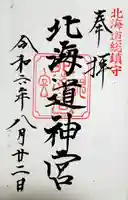 北海道総鎮守
奉拝
北海道神宮
令和六年八月廿二日